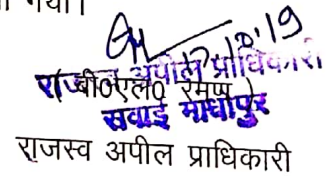 गया।
17.10.19
राजस्व अपील प्राधिकारी
(बी०एल० रमण
सवाई माधोपुर
राजस्व अपील प्राधिकारी